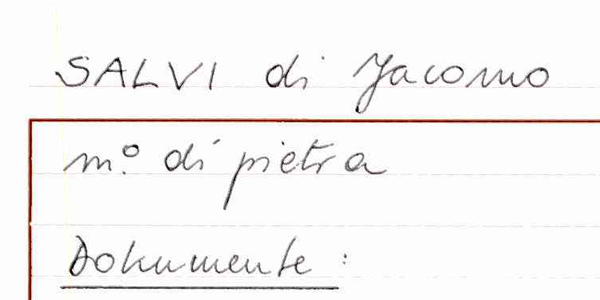 SALVI di Jacomo
mº. di pietra
Dokumente: